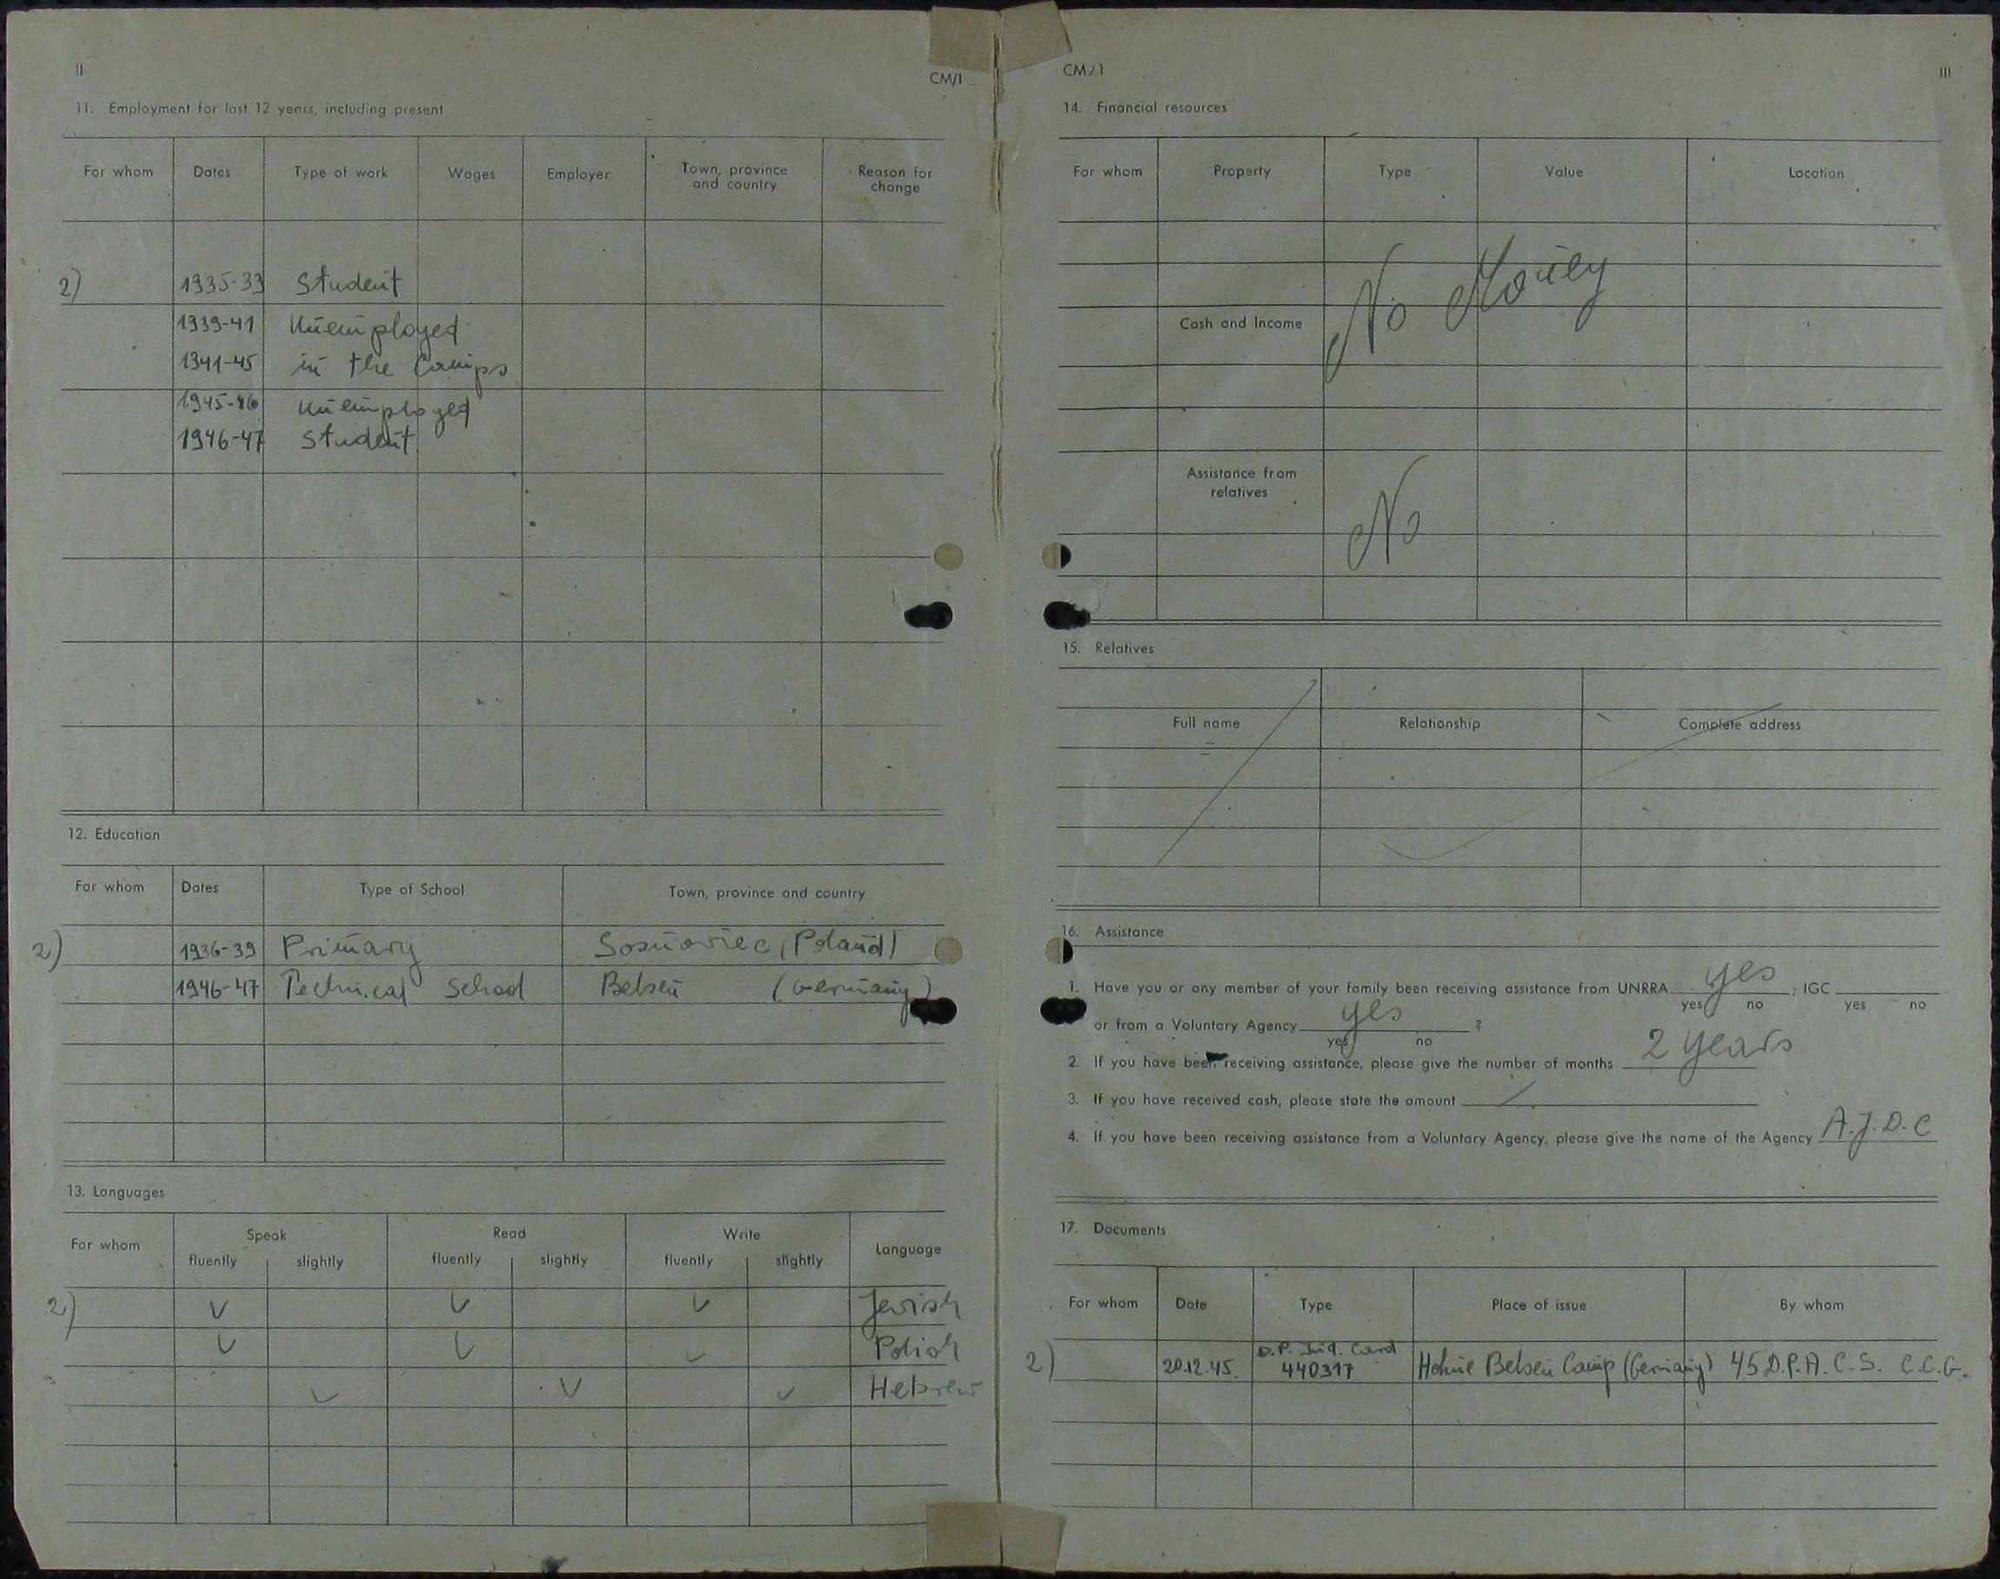 II
CM/1
11. Employment for last 12 years, including present
For whom Dates Type of work Wages Employer Town, province and country Reason for change
2) 1935-39 Student
1939-41 Unemployed
1941-45 in the Camps
1945-46 Unemployed
1946-47 Student
12. Education
For whom Dates Type of School Town, province and country
2) 1936-39 Primary Sosnoviec (Poland)
1946-47 Technical School Belsen (Germany)
13. Languages
For whom Speak Read Write Language
fluently slightly fluently slightly fluently slightly
2) V V V Jewish
V V V Polish
V V V Hebrew
CM/1
III
14. Financial resources
For whom Property Type Value Location
No Money
Cash and Income
Assistance from relatives No
15. Relatives
Full name Relationship Complete address
16. Assistance
1. Have you or any member of your family been receiving assistance from UNRRA yes ; IGC
yes no yes no
or from a Voluntary Agency yes ?
yes no
2. If you have been receiving assistance, please give the number of months 2 years
3. If you have received cash, please state the amount /
4. If you have been receiving assistance from a Voluntary Agency, please give the name of the Agency A.J.D.C
17. Documents
For whom Date Type Place of issue By whom
D.P. Ind. Card
2) 20.12.45. 440317 Hohne Belsen Camp (Germany) 45 D.P.A.C.S. C.C.G.